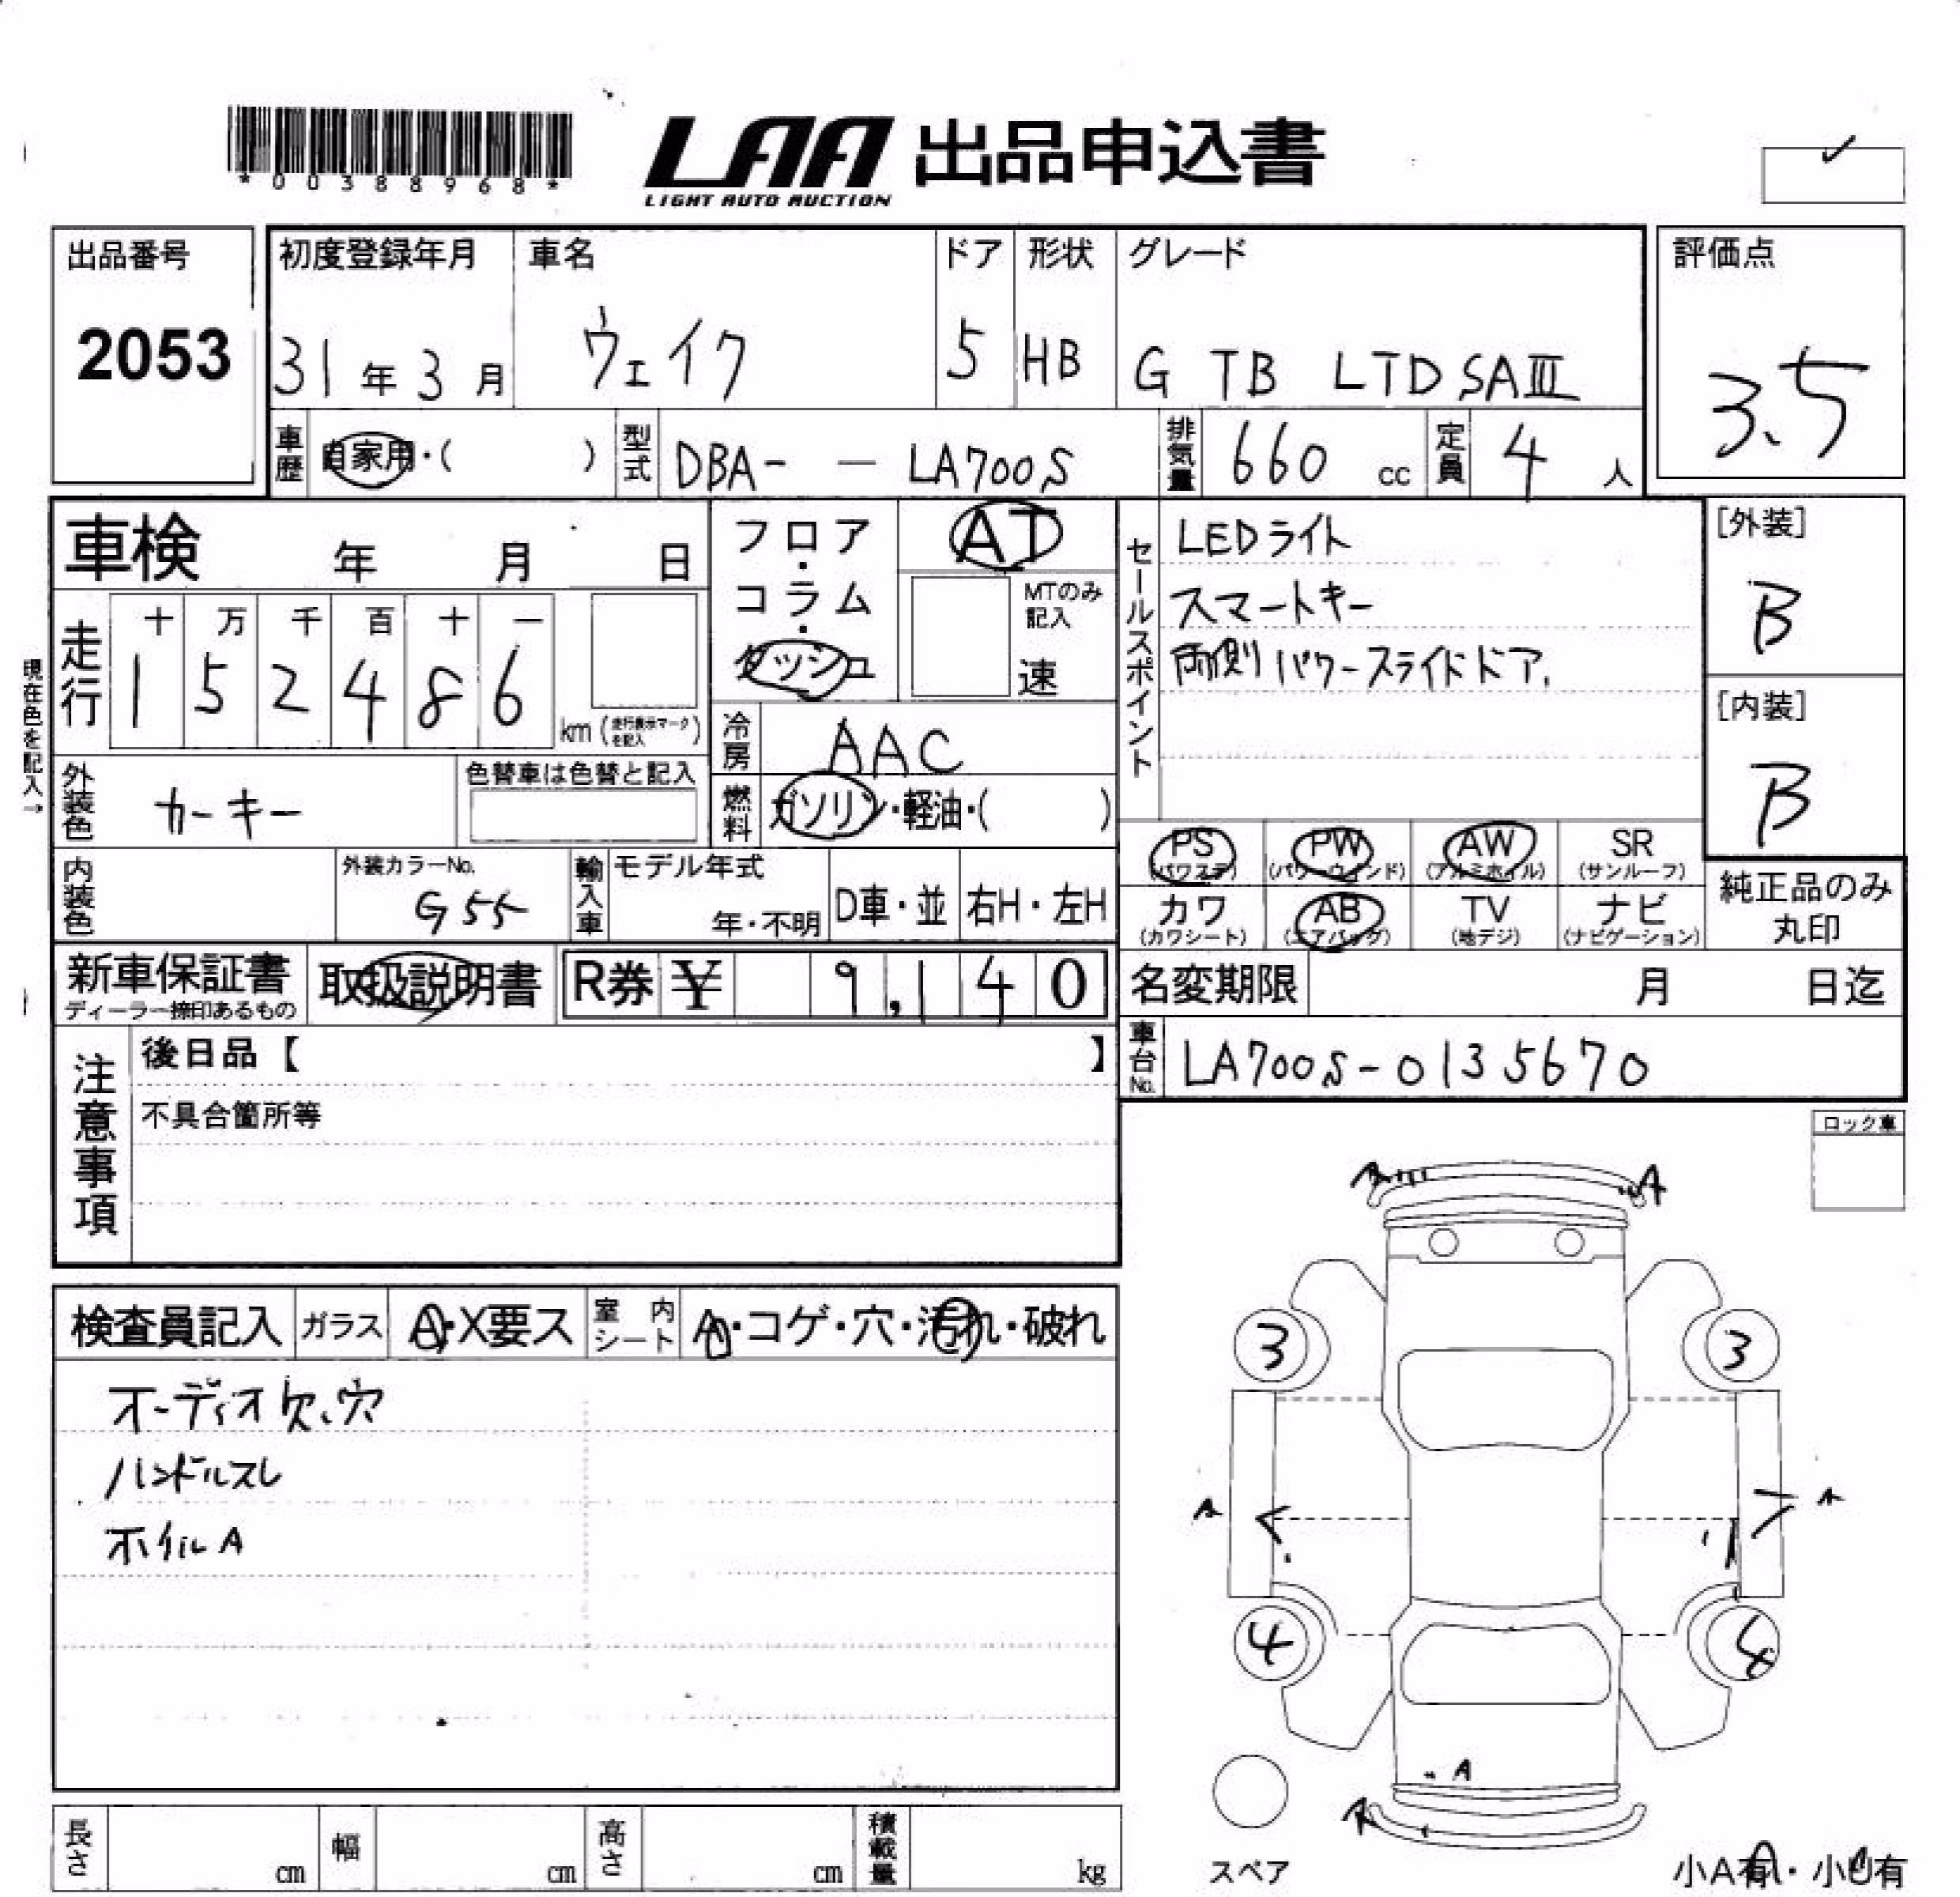 *00388968*
LAA 出品申込書
LIGHT AUTO AUCTION
出品番号
2053
初度登録年月
31年3月
車名
ウェイク
ドア
5
形状
HB
グレード
G TB LTD SAIII
評価点
3.5
車歴 自家用・( )
型式 DBA- — LA700S
排気量 660 cc
定員 4 人
車検 年 月 日
現在色を記入→
走行
十 万 千 百 十 一
1 5 2 4 8 6
km (走行表示マークを記入)
外装色 カーキー
色替車は色替と記入
内装色
外装カラーNo.
G55
輸入車
モデル年式
年・不明
D車・並
右H・左H
フロア・コラム・ダッシュ
AT
MTのみ記入
速
冷房 AAC
燃料 ガソリン・軽油・( )
セールスポイント
LEDライト
スマートキー
両側パワースライドドア.
[外装]
B
[内装]
B
PS (パワステ)
PW (パワーウインド)
AW (アルミホイル)
SR (サンルーフ)
カワ (カワシート)
AB (エアバッグ)
TV (地デジ)
ナビ (ナビゲーション)
純正品のみ
丸印
新車保証書
ディーラー捺印あるもの
取扱説明書
R券 ¥ 9,140
名変期限 月 日迄
車台No. LA700S-0135670
注意事項
後日品【 】
不具合箇所等
ロック車
検査員記入
ガラス A・X要ス
室内シート A・コゲ・穴・汚れ・破れ
オーディオ欠、穴
ハンドルスレ
ホイルA
A
3 3
A A
4 4
A
スペア
小A有・小U有
長さ cm
幅 cm
高さ cm
積載量 kg